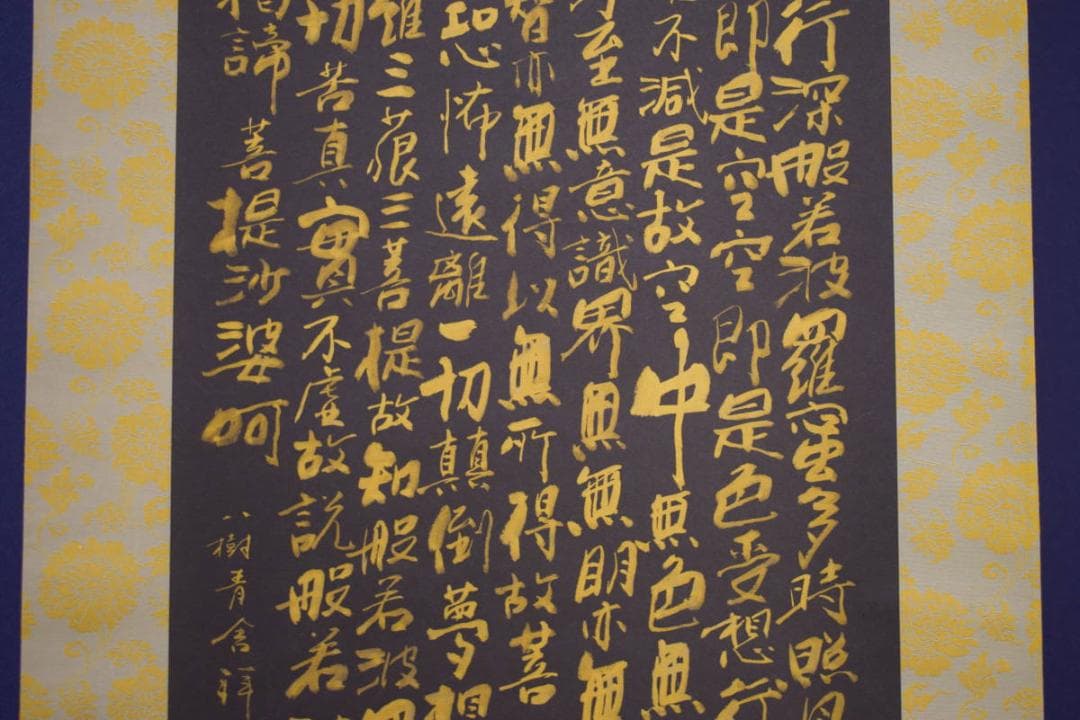 行深般若波羅蜜多時照見
即是空空即是色受想行
不減是故空中無色無
至無意識界無無明亦無
智亦無得以無所得故菩
恐怖遠離一切顛倒夢想
羅三藐三菩提故知般若波羅
切苦真實不虛故說般若
揭諦菩提沙婆呵
樹青舍